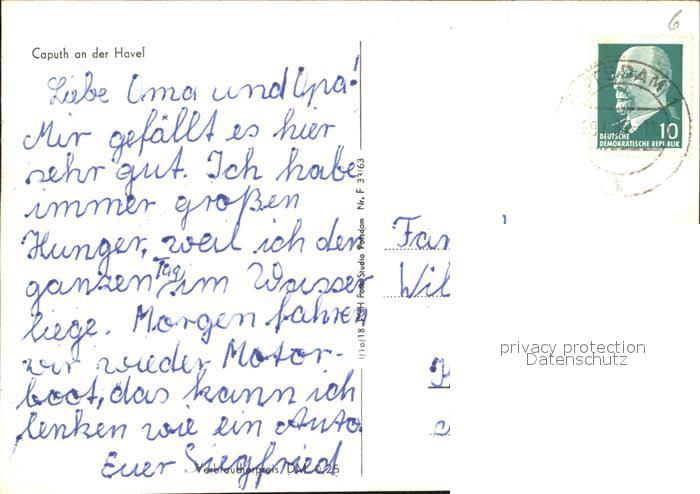 6
Caputh an der Havel
Liebe Oma und Opa!
Mir gefällt es hier
sehr gut. Ich habe
immer großen
Hunger, weil ich den
ganzen Tag im Wasser
liege. Morgen fahren
wir wieder Motor-
boot, das kann ich
lenken wie ein Auto
Euer Siegfried
Verbraucherpreis DM 0,25
Nr. F 33/63
Foto Studio Potsdam
Fam
Wil
POTSDAM
10
DEUTSCHE
DEMOKRATISCHE REPUBLIK
privacy protection
Datenschutz